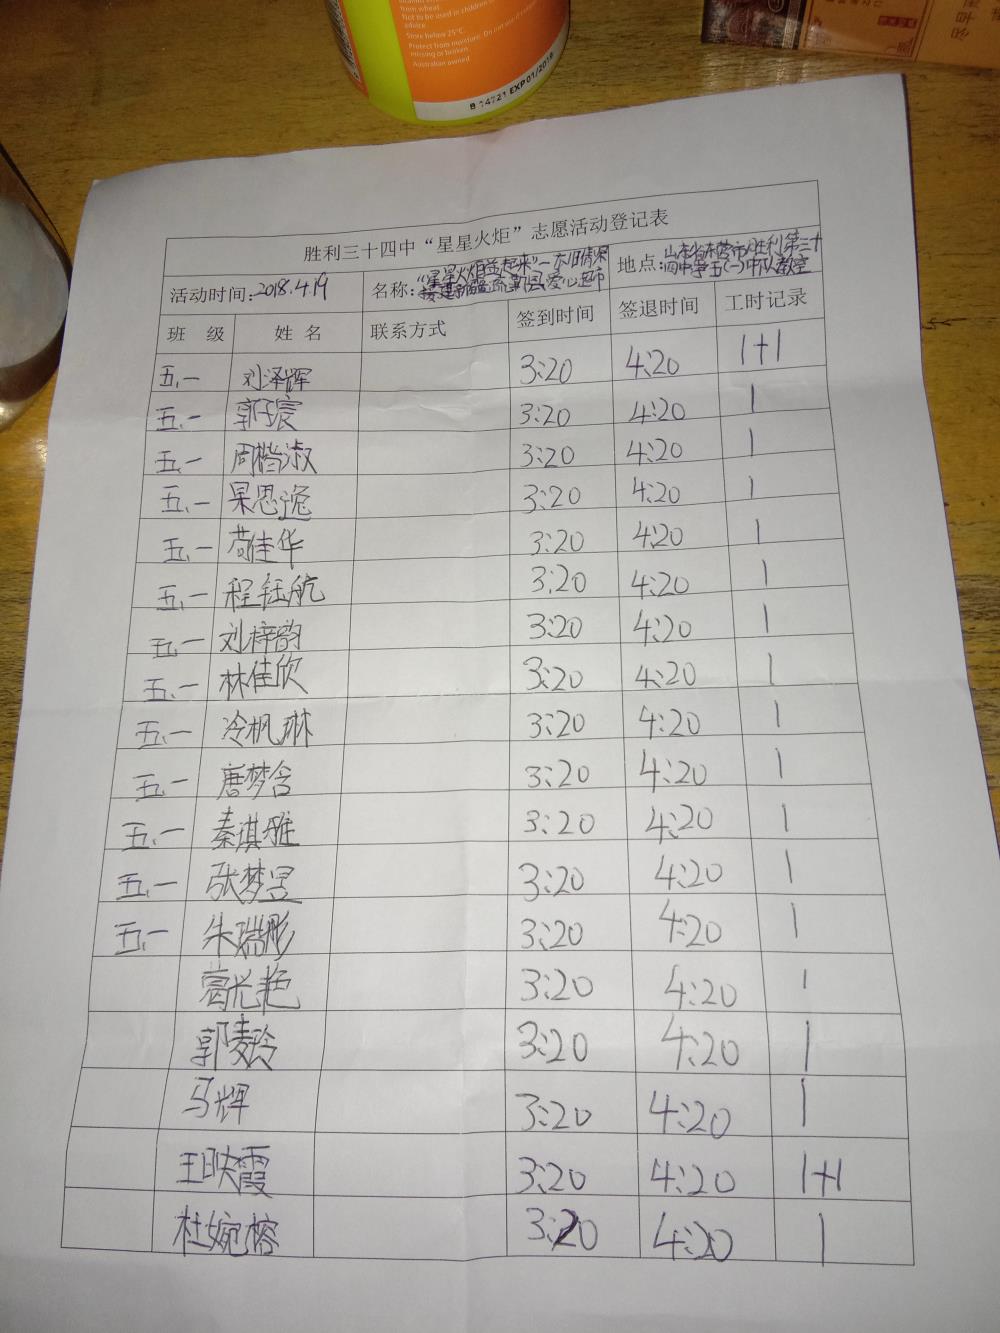 from wheat.
Not to be used in children
advice
Store below 25°C.
Protect from moisture. Do not use if
missing or broken
Australian owned
B 14721 EXP 01/2019
胜利三十四中“星星火炬”志愿活动登记表
活动时间:2018.4.19 名称: 地点:山东省东营市胜利第三十
四中学五(一)中队教室
班 级 姓 名 联系方式 签到时间 签退时间 工时记录
五.一 刘泽辉 3:20 4:20 1+1
五.一 郭子宸 3:20 4:20 1
五.一 周楷淑 3:20 4:20 1
五.一 果思逸 3:20 4:20 1
五.一 苟佳华 3:20 4:20 1
五.一 程钰航 3:20 4:20 1
五.一 刘梓韵 3:20 4:20 1
五.一 林佳欣 3:20 4:20 1
五.一 冷枫琳 3:20 4:20 1
五.一 唐梦含 3:20 4:20 1
五.一 秦淇雅 3:20 4:20 1
五.一 张梦昱 3:20 4:20 1
五.一 朱瑞彤 3:20 4:20 1
葛长艳 3:20 4:20 1
郭麦玲 3:20 4:20 1
马辉 3:20 4:20 1
王映霞 3:20 4:20 1+1
杜婉榕 3:20 4:20 1